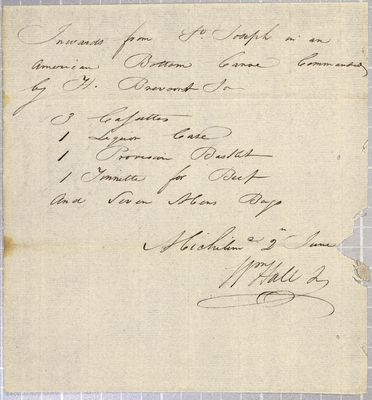 Inwards from St. Joseph in an
American Bottom Canoe Commanded
by H. Brevoort Jr
3 Cassettes
1 Liquor Case
1 Provision Basket
1 Tinnette for Beef
And Seven Mens Bags
Michilima 2n June
Wm Hall